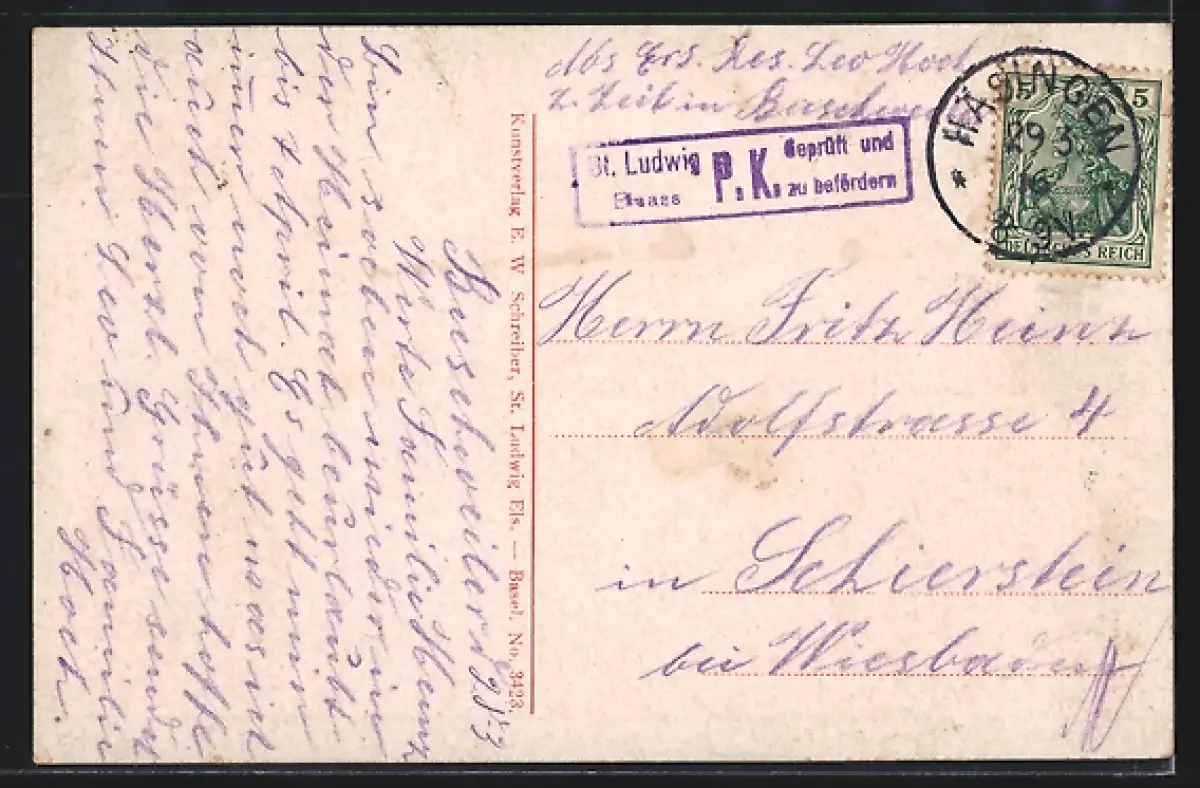 Abs Ers. Res. Leo Hoch
z. Zeit in
St. Ludwig
Elsass
P. K.
Geprüft und
zu befördern
HÄSINGEN
29 3
16
8-9N.
5
DEUTSCHES REICH
Herrn Fritz Heinz
Adolfstrasse 4
in Schierstein
bei Wiesbaden
Kunstverlag E. W. Schreiber, St. Ludwig Els. — Basel. No. 3423.
Buschweiler
Werte Familie Heinz
Bin soeben wieder in
der Heimat beurlaubt
bis 1 April. Es geht mir
immer noch gut was ich
auch von Ihnen hoffe
Die Herzl. Grüsse sendet
Ihnen Leo und Familie
Hoch.